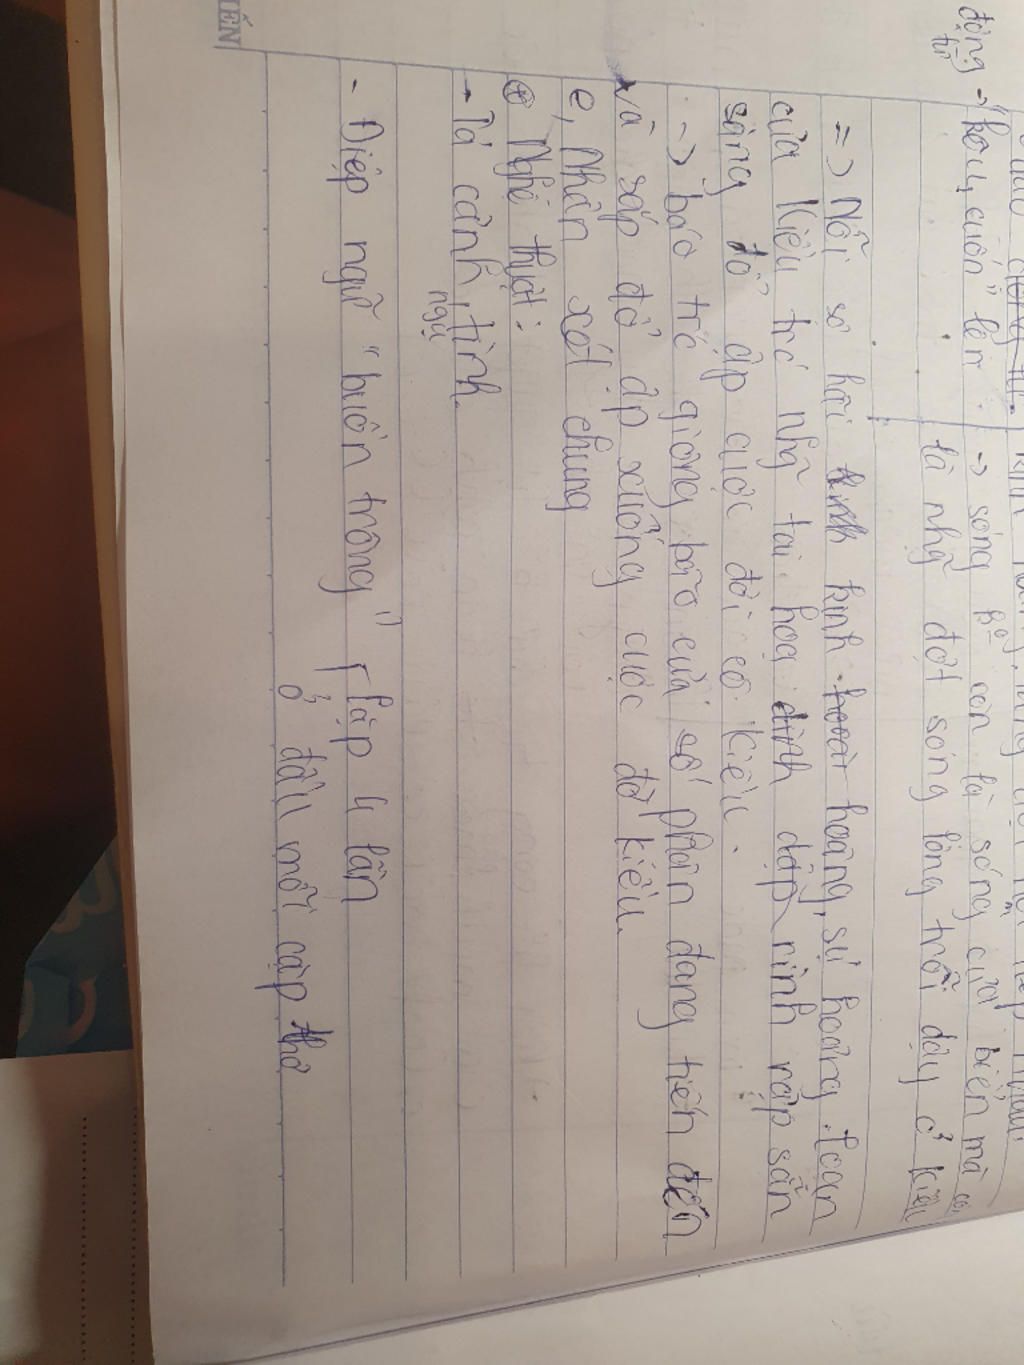 động → "kêu, cuốn" lên → sóng k° còn là sóng của biển mà còn
từ
là những đợt sóng lòng trỗi dậy ở Kiều
=> Nỗi sợ hãi kinh hoàng, sự hoảng loạn
của Kiều trc nhg tai hoạ dình dập rình rập sẵn
sàng đổ ập cuộc đời cô Kiều.
-> báo trc giông bão của số phận đang tiến đến
và sắp đổ ập xuống cuộc đờ kiều.
e, Nhận xét chung
⊕ Nghệ thuật:
- Tả cảnh, tình.
ngụ
- Điệp ngữ "buồn trông" lặp 4 lần
ở đầu mỗi cặp thơ
IẾN